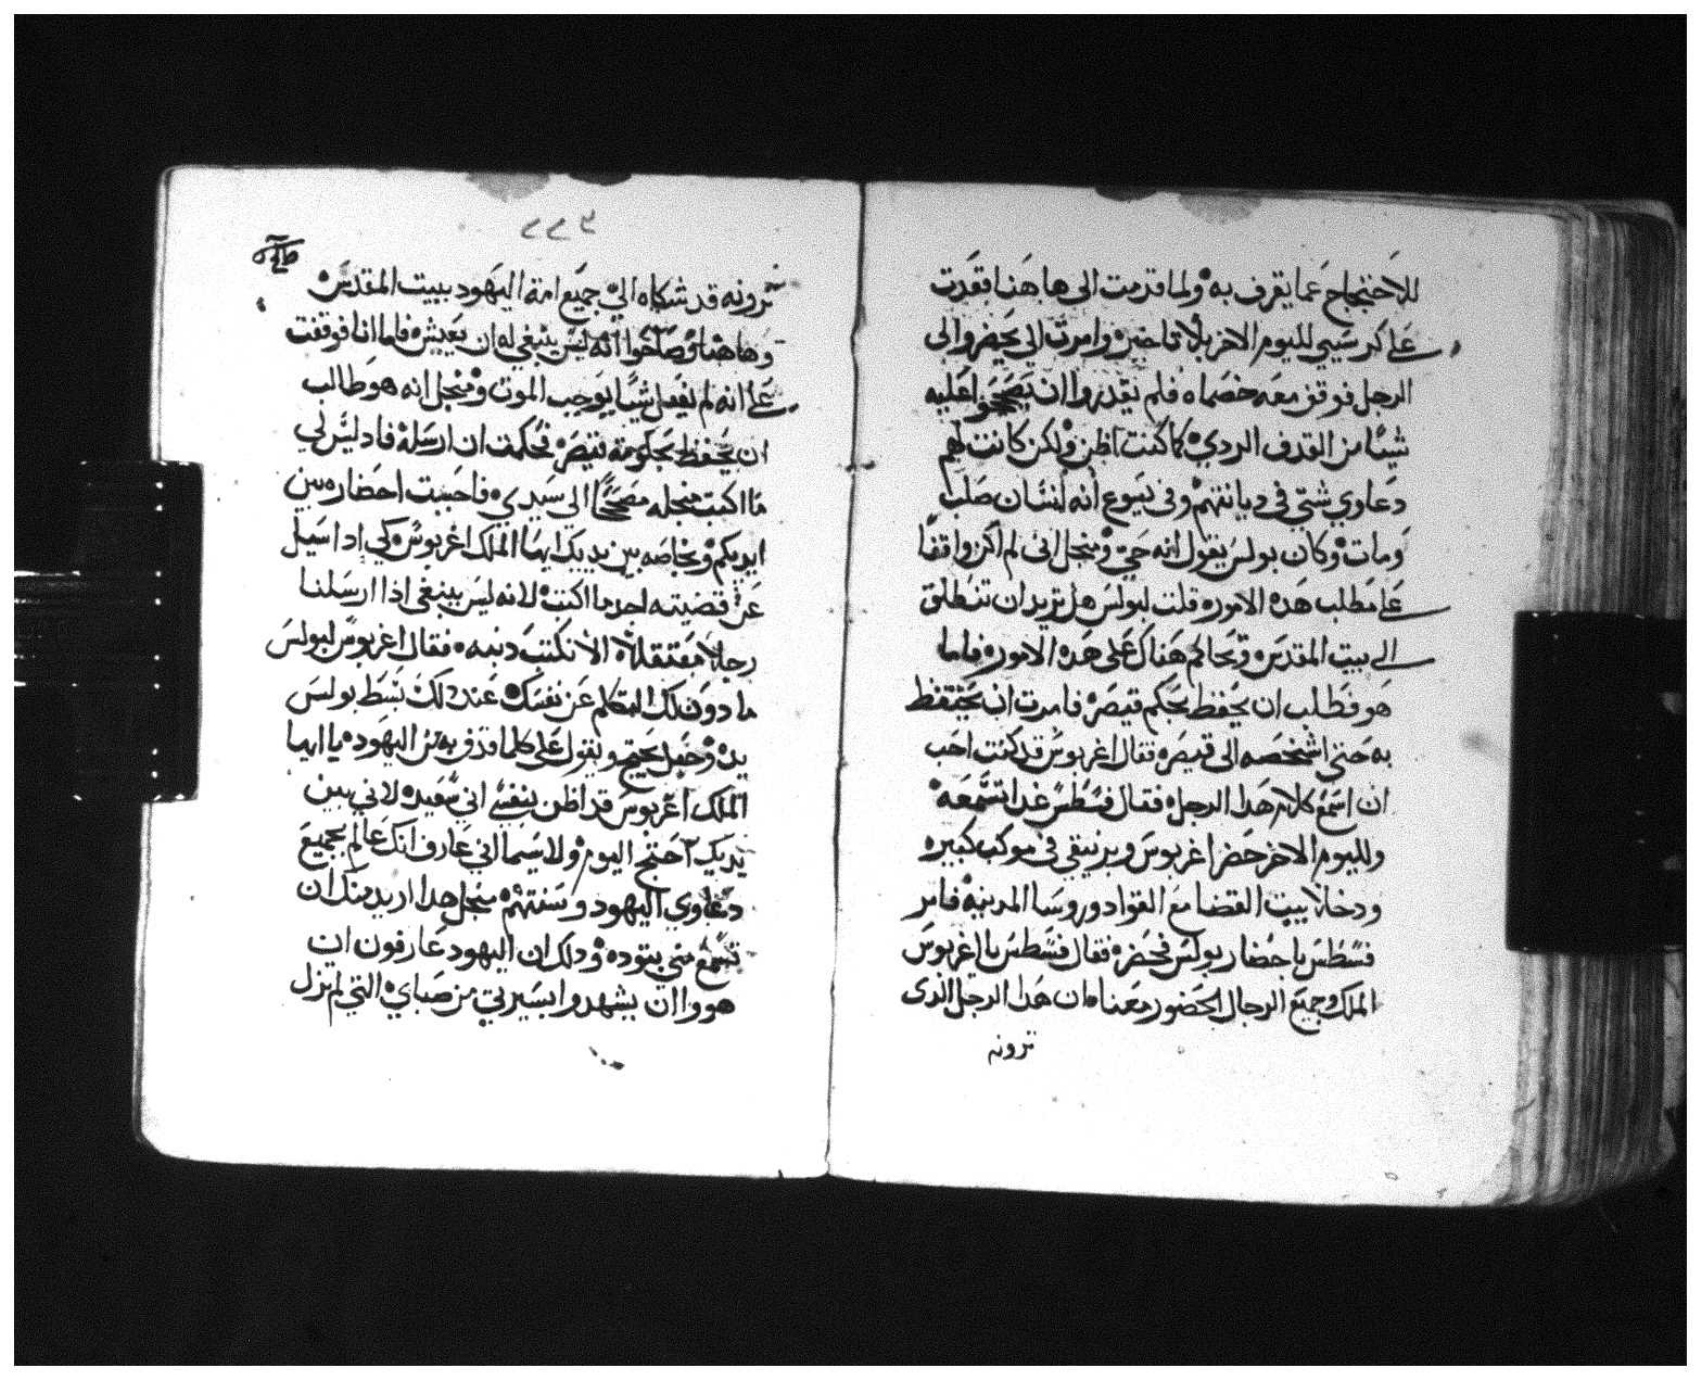 للاحتجاج عما يقرف به ولما قدمت الى هاهنا قعدت
على كرسيي لليوم الاخر بلا تاخير وامرت الى يحضروا لى
الرجل فوقف معه خصماه فلم يقدروا ان يصححوا عليه
شيًا من القدف الردي كما كنت اظن ولكن كانت لهم
دعاوي شتي في ديانتهم وفى يسوع انه انسان صلب
ومات وكان بولس يقول انه حي ومنجل انى لم اكن واقفًا
على مطلب هده الامور قلت لبولس هل تريد ان تنطلق
الى بيت المقدس وتحاكم هناك على هده الامور فاما
هو فطلب ان يحفظ بحكم قيصر فامرت ان يحتفظ
به حتى اشخصه الى قيصر فقال اغربوس قد كنت احب
ان اسمع كلام هدا الرجل فقال فسطس غدا تسمعه
ولليوم الاخر حضر اغربوس وبرنيقي في موكب كبير
ودخلا بيت القضا مع القواد وروسا المدينه فامر
فسطس باحضار بولس فحضر فقال فسطس يا اغربوس
الملك وجميع الرجال الحضور معنا ان هدا الرجل الدى
ترونه
٢٢٣
ترونه قد شكاه الي جميع امة اليهود ببيت المقدس
وهاهنا وصاحوا انه ليس ينبغي له ان يعيش فاما انا فوقفت
على انه لم يفعل شيًا يوجب الموت ومنجل انه هو طالب
ان يحفظ بحكومة قيصر فحكمت ان ارسله فاد ليس لي
ما اكتب منجله مصححًا الى سيدي فاحببت احضاره بين
ايديكم وبخاصه بين يديك ايها الملك اغربوس كي ادا سيل
عن قضيته اجد ما اكتب لانه ليس ينبغي ادا ارسلنا
رجلا معتقلا الا نكتب دنبه فقال اغربوس لبولس
مادون لك المتكلم عن نفسك عند دلك بسط بولس
يده وجعل يحتج ويقول على كلما قدف به من اليهود يا ايها
الملك اغربوس قد اظن بنفسي اني سعيد لاني بين
يديك احتج اليوم ولا سيما اني عارف انك عالم بجميع
دعاوي اليهود وسنتهم منجل هدا اريد منك ان
تسمع مني بتوده ودلك ان اليهود عارفون ان
هووا ان يشهدوا بسيرتي من صباي التي لم تزل